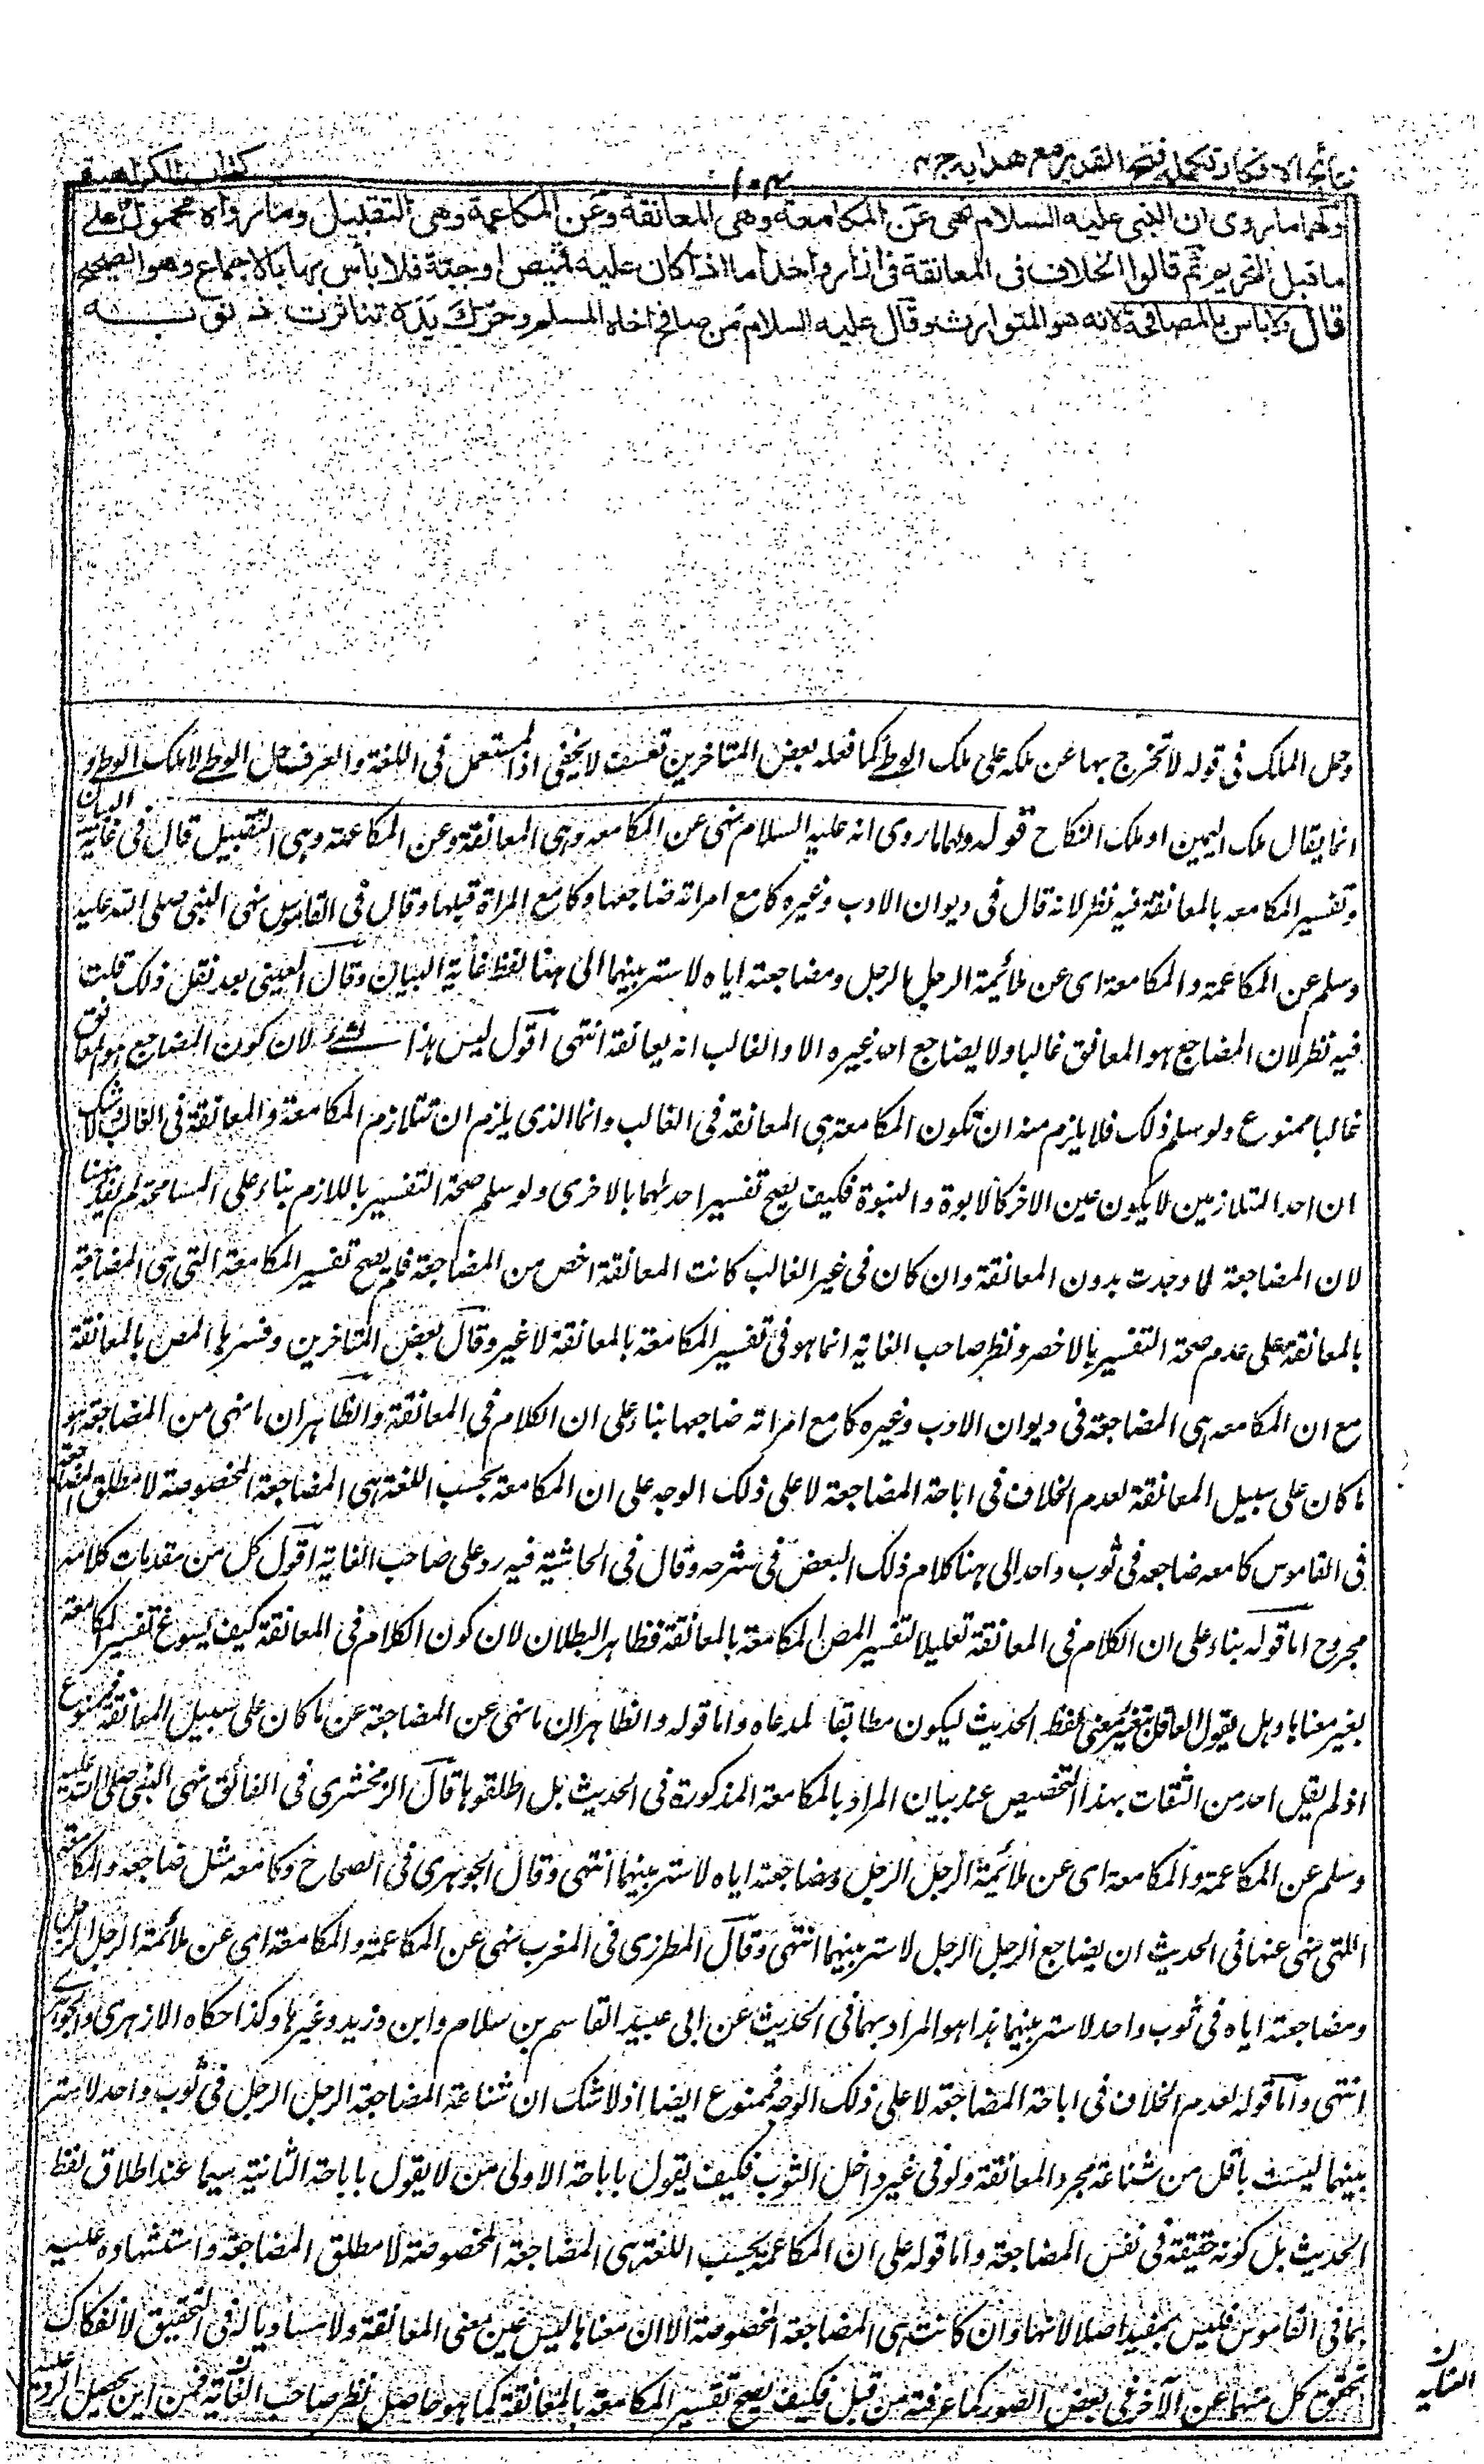 نتائج الافكار تكملة فتح القدير مع هداية ج ٤
١٠٣
كتاب الكراهية
ولهما ما روى ان النبى عليه السلام نهى عن المكامعة وهى المعانقة وعن المكاعمة وهى التقبيل وما رواه محمول على
ما قبل التحريم ثم قالوا الخلاف فى المعانقة فى ازار واحد اما اذا كان عليه قميص او جبة فلا بأس بها بالاجماع وهو الصحيح
قال ولا باس بالمصافحة لانه هو المتوارث وقال عليه السلام من صافح اخاه المسلم وحرك يده تناثرت ذنوبه
وحمل الملك فى قوله لا تخرج بها عن ملكه على ملك الوطئ كما فعله بعض المتاخرين تعسف لا يخفى اذ المستعمل فى اللغة والعرف حل الوطئ لا ملك الوطئ و
انما يقال ملك اليمين او ملك النكاح قوله ولهما ما روى انه عليه السلام نهى عن المكامعه وهى المعانقة وعن المكاعمة وهى التقبيل قال فى غاية البيان
وتفسير المكامعه بالمعانقة فيه نظر لانه قال فى ديوان الادب وغيره كامع امراته ضاجعها وكاعم المراة قبلها وقال فى القاموس نهى النبى صلى الله عليه
وسلم عن المكاعمة والمكامعة اى عن ملائمة الرجل الرجل ومضاجعته اياه لا ستر بينهما الى هنا لفظ غاية البيان وقال العينى بعد نقل ذلك قلت
فيه نظر لان المضاجع هو المعانق غالبا ولا يضاجع احد غيره الا والغالب انه يعانقه انتهى اقول ليس هذا بشئ لان كون المضاجع هو المعانق
غالبا ممنوع ولو سلم ذلك فلا يلزم منه ان تكون المكامعة هى المعانقة فى الغالب وانما الذى يلزم ان تتلازم المكامعة والمعانقة فى الغالب ولا شك
ان احد المتلازمين لا يكون عين الاخر كالابوة والبنوة فكيف يصح تفسير احدلهما بالاخرى ولو سلم صحة التفسير باللازم بناء على المسامحة لم يفد ههنا
لان المضاجعة لما وجدت بدون المعانقة وان كان فى غير الغالب كانت المعانقة اخص من المضاجعة فلم يصح تفسير المكامعة التى هى المضاجعة
بالمعانقة على عدم صحة التفسير بالاخص ونظر صاحب الغاية انما هو فى تفسير المكامعة بالمعانقة لا غير وقال بعض المتاخرين وفسرها المص بالمعانقة
مع ان المكامعه هى المضاجعة فى ديوان الادب وغيره كامع امراته ضاجعها بناء على ان الكلام فى المعانقة والظاهر ان ما نهى من المضاجعة هو
ما كان على سبيل المعانقة لعدم الخلاف فى اباحة المضاجعة لا على ذلك الوجه على ان المكامعة بحسب اللغة هى المضاجعة المخصوصة لا مطلق المضاجعة
فى القاموس كامعه ضاجعه فى ثوب واحد الى هنا كلام ذلك البعض فى شرحه وقال فى الحاشية فيه رد على صاحب الغاية اقول كل من مقدمات كلامه
مجروح اما قوله بناء على ان الكلام فى المعانقة تعليلا لتفسير المص المكامعة بالمعانقة فظاهر البطلان لان كون الكلام فى المعانقة كيف يسوغ تفسير المكامعة
بغير معناها وهل يقول العاقل بتغيير معنى لفظ الحديث ليكون مطابقا لمدعاه واما قوله والظاهر ان ما نهى عن المضاجعة عن ما كان على سبيل المعانقة فممنوع
اذ لم يقل احد من الثقات بهذا التخصيص عند بيان المراد بالمكامعة المذكورة فى الحديث بل اطلقوها قال الزمخشرى فى الفائق نهى النبى صلى الله عليه
وسلم عن المكاعمة والمكامعة اى عن ملائمة الرجل الرجل ومضاجعته اياه لا ستر بينهما انتهى وقال الجوهرى فى الصحاح وكامعه مثل ضاجعه والمكامعة
اللتى نهى عنها فى الحديث ان يضاجع الرجل الرجل لا ستر بينهما انتهى وقال المطرزى فى المغرب نهى عن المكاعمة والمكامعة اى عن ملائمة الرجل الرجل
ومضاجعته اياه فى ثوب واحد لا ستر بينهما هذا هو المراد بهما فى الحديث عن ابى عبيد القاسم بن سلام وابن دريد وغيرها وكذا حكاه الازهرى والجوهرى
انتهى واما قوله لعدم الخلاف فى اباحة المضاجعة لا على ذلك الوجه فممنوع ايضا اذ لا شك ان شناعة المضاجعة الرجل الرجل فى ثوب واحد لا ستر
بينهما ليست باقل من شناعة مجرد المعانقة ولو فى غير داخل الثوب فكيف يقول باباحة الاولى من لا يقول باباحة الثانية سيما عند اطلاق لفظ
الحديث بل كونه حقيقة فى نفس المضاجعة واما قوله على ان المكاعمة بحسب اللغة هى المضاجعة المخصوصة لا مطلق المضاجعة واستشهاده عليه
بما فى القاموس فليس بمفيد اصلا لانها وان كانت هى المضاجعة المخصوصة الا ان معناها ليس عين معنى المعانقة ولا مساويا له فى التحقيق لانفكاك
تحقق كل منهما عن الآخر فى بعض الصور كما عرفته من قبل فكيف يصح تفسير المكامعة بالمعانقة كما هو حاصل نظر صاحب الغاية فمن اين يحصل الرد عليه